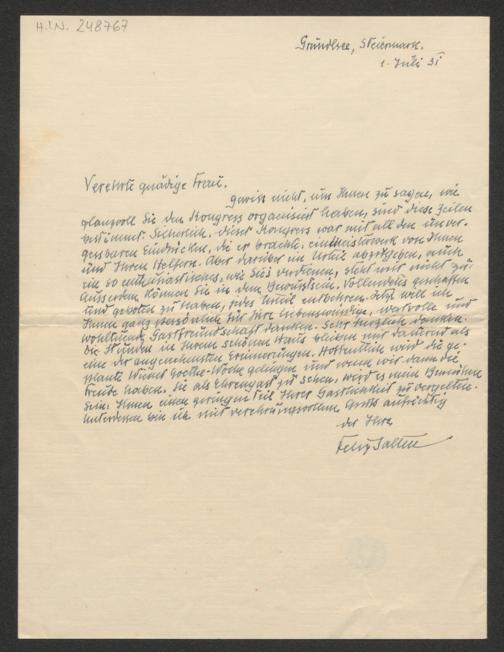 H.I.N. 248767
Grundlsee, Steiermark.
1. Juli 31
Verehrte gnädige Frau,
gewiss nicht, um Ihnen zu sagen, wie
glanzvoll Sie den Kongress organisiert haben, sind diese Zeilen
bestimmt. Sicherlich, dieser Kongress war mit all den unver-
gessbaren Eindrücken, die er brachte, ein Meisterwerk von Ihnen
und Ihren Helfern. Aber darüber ein Urteil abzugeben, auch
ein so enthusiastisches, wie Sie's verdienen, steht mir nicht zu.
Ausserdem können Sie in dem Bewusstsein, Vollendetes geschaffen
und geboten zu haben, jedes Urteil entbehren. Jetzt will ich
Ihnen ganz persönlich für Ihre liebenswürdige, wertvolle und
wohltuende Gastfreundschaft danken. Sehr herzlich danken.
Die Stunden in Ihrem schönen Haus bleiben mir dauernd als
eine der angenehmsten Erinnerungen. Hoffentlich wird die ge-
plante Wiener Goethe-Woche gelingen und wenn wir dann die
Freude haben, Sie als Ehrengast zu sehen, wird es mein Bemühen
sein, Ihnen einen geringen Teil Ihrer Gastlichkeit zu vergelten.
Unterdessen bin ich mit verehrungsvollem Gruss aufrichtig
der Ihre
Felix Salten